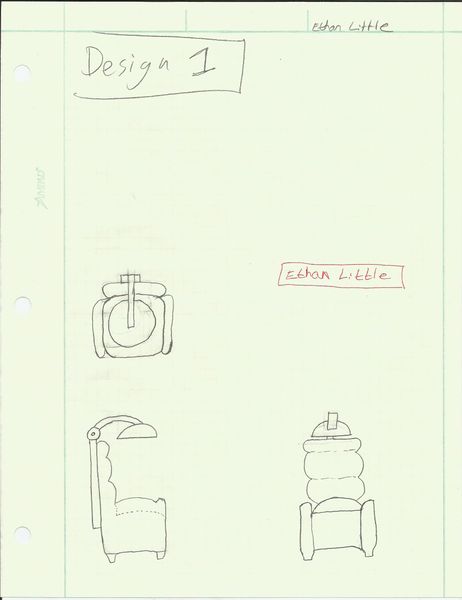 Ethan Little
Design 1
Ethan Little